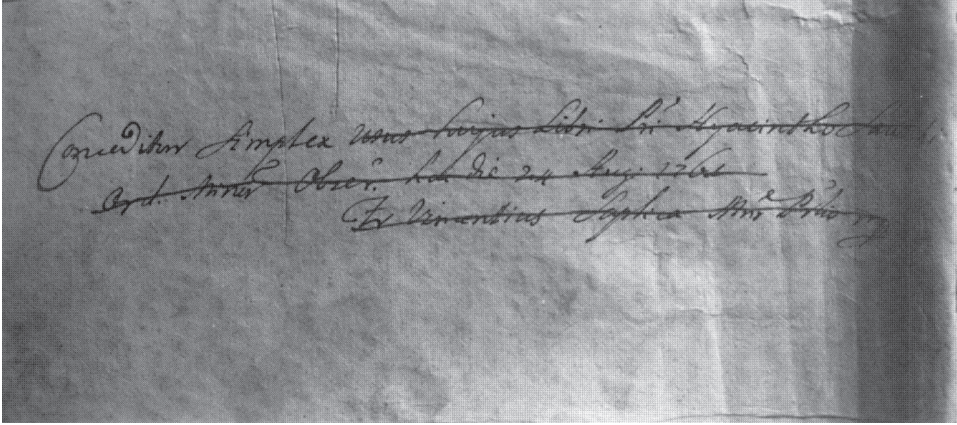 Conceditur Simplex usus hujus Libri Pri Hyacintho
Ord. Minor Obser. hac die 24 Aug. 1761
Fr Vincentius Sophia Minr Prlis